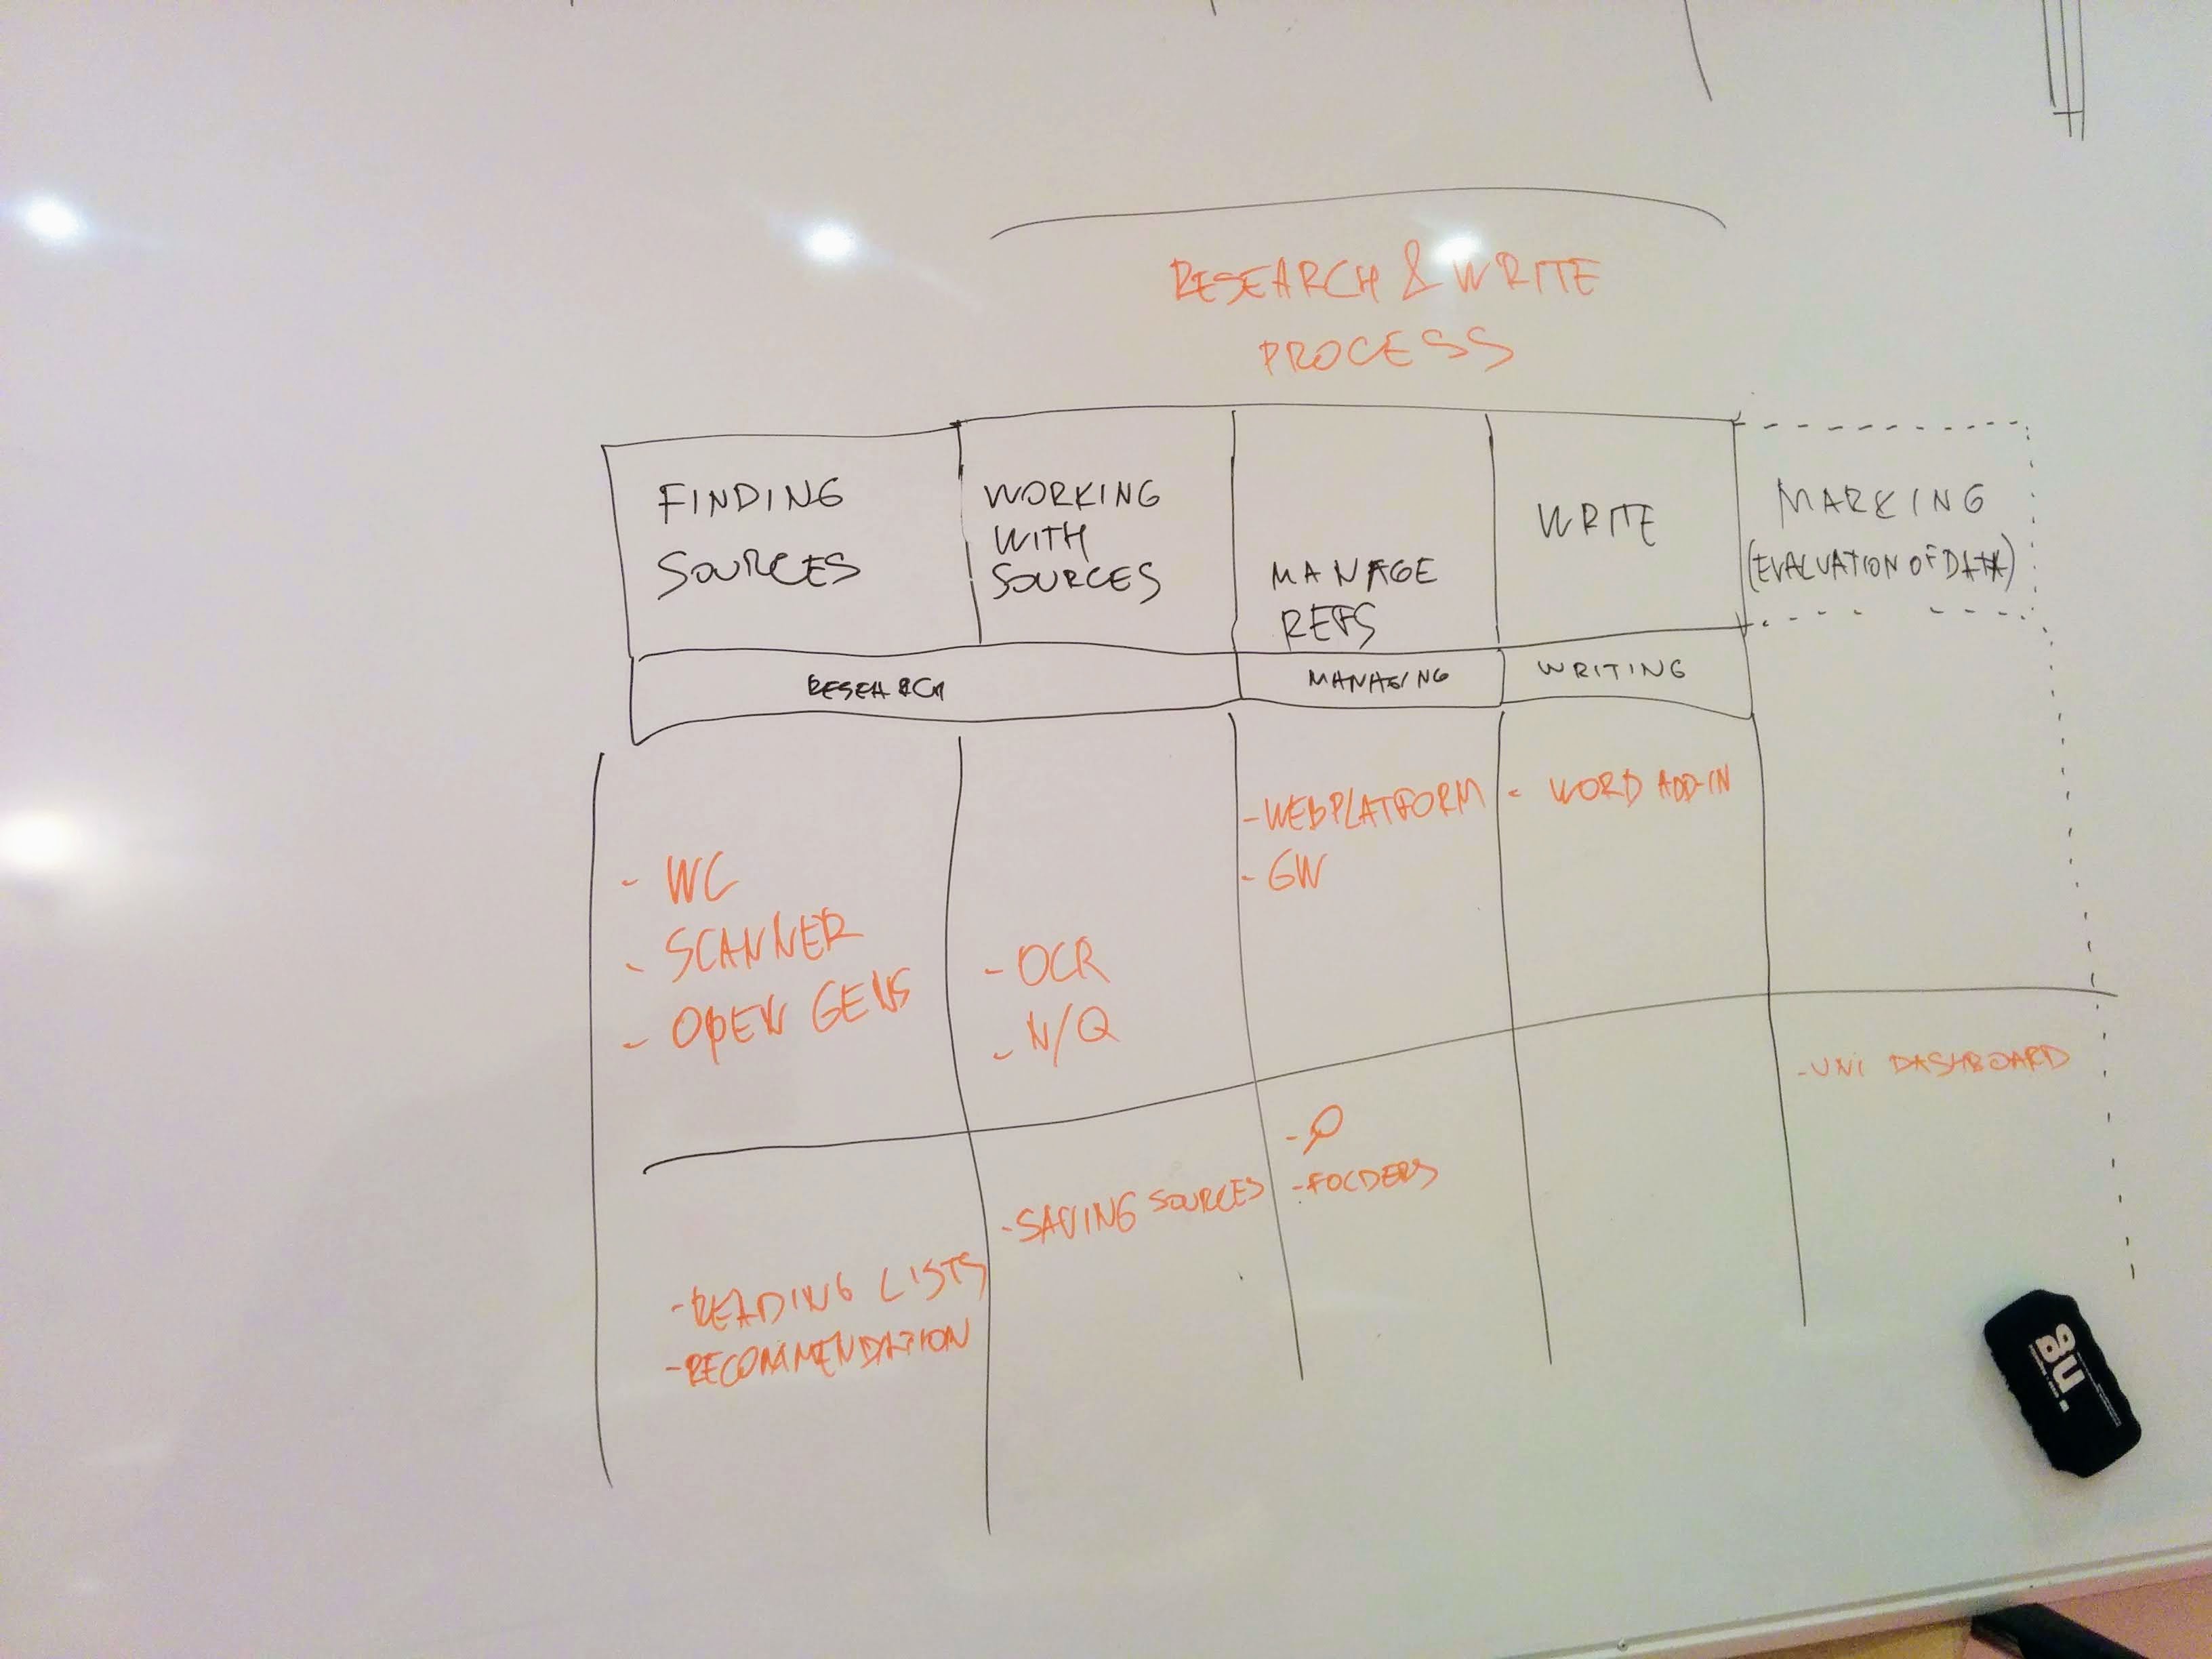 RESEARCH & WRITE
PROCESS
FINDING
SOURCES
WORKING
WITH
SOURCES
MANAGE
REFS
WRITE
MARKING
(EVALUATION OF DATA)
RESEARCH
MANAGING
WRITING
- WC
- SCANNER
- OPEN GENS
- OCR
- N/Q
- WEBPLATFORM
- GW
- WORD ADD-IN
- READING LISTS
- RECOMMENDATION
- SAVING SOURCES
-
- FOLDERS
- UNI DASHBOARD
nga